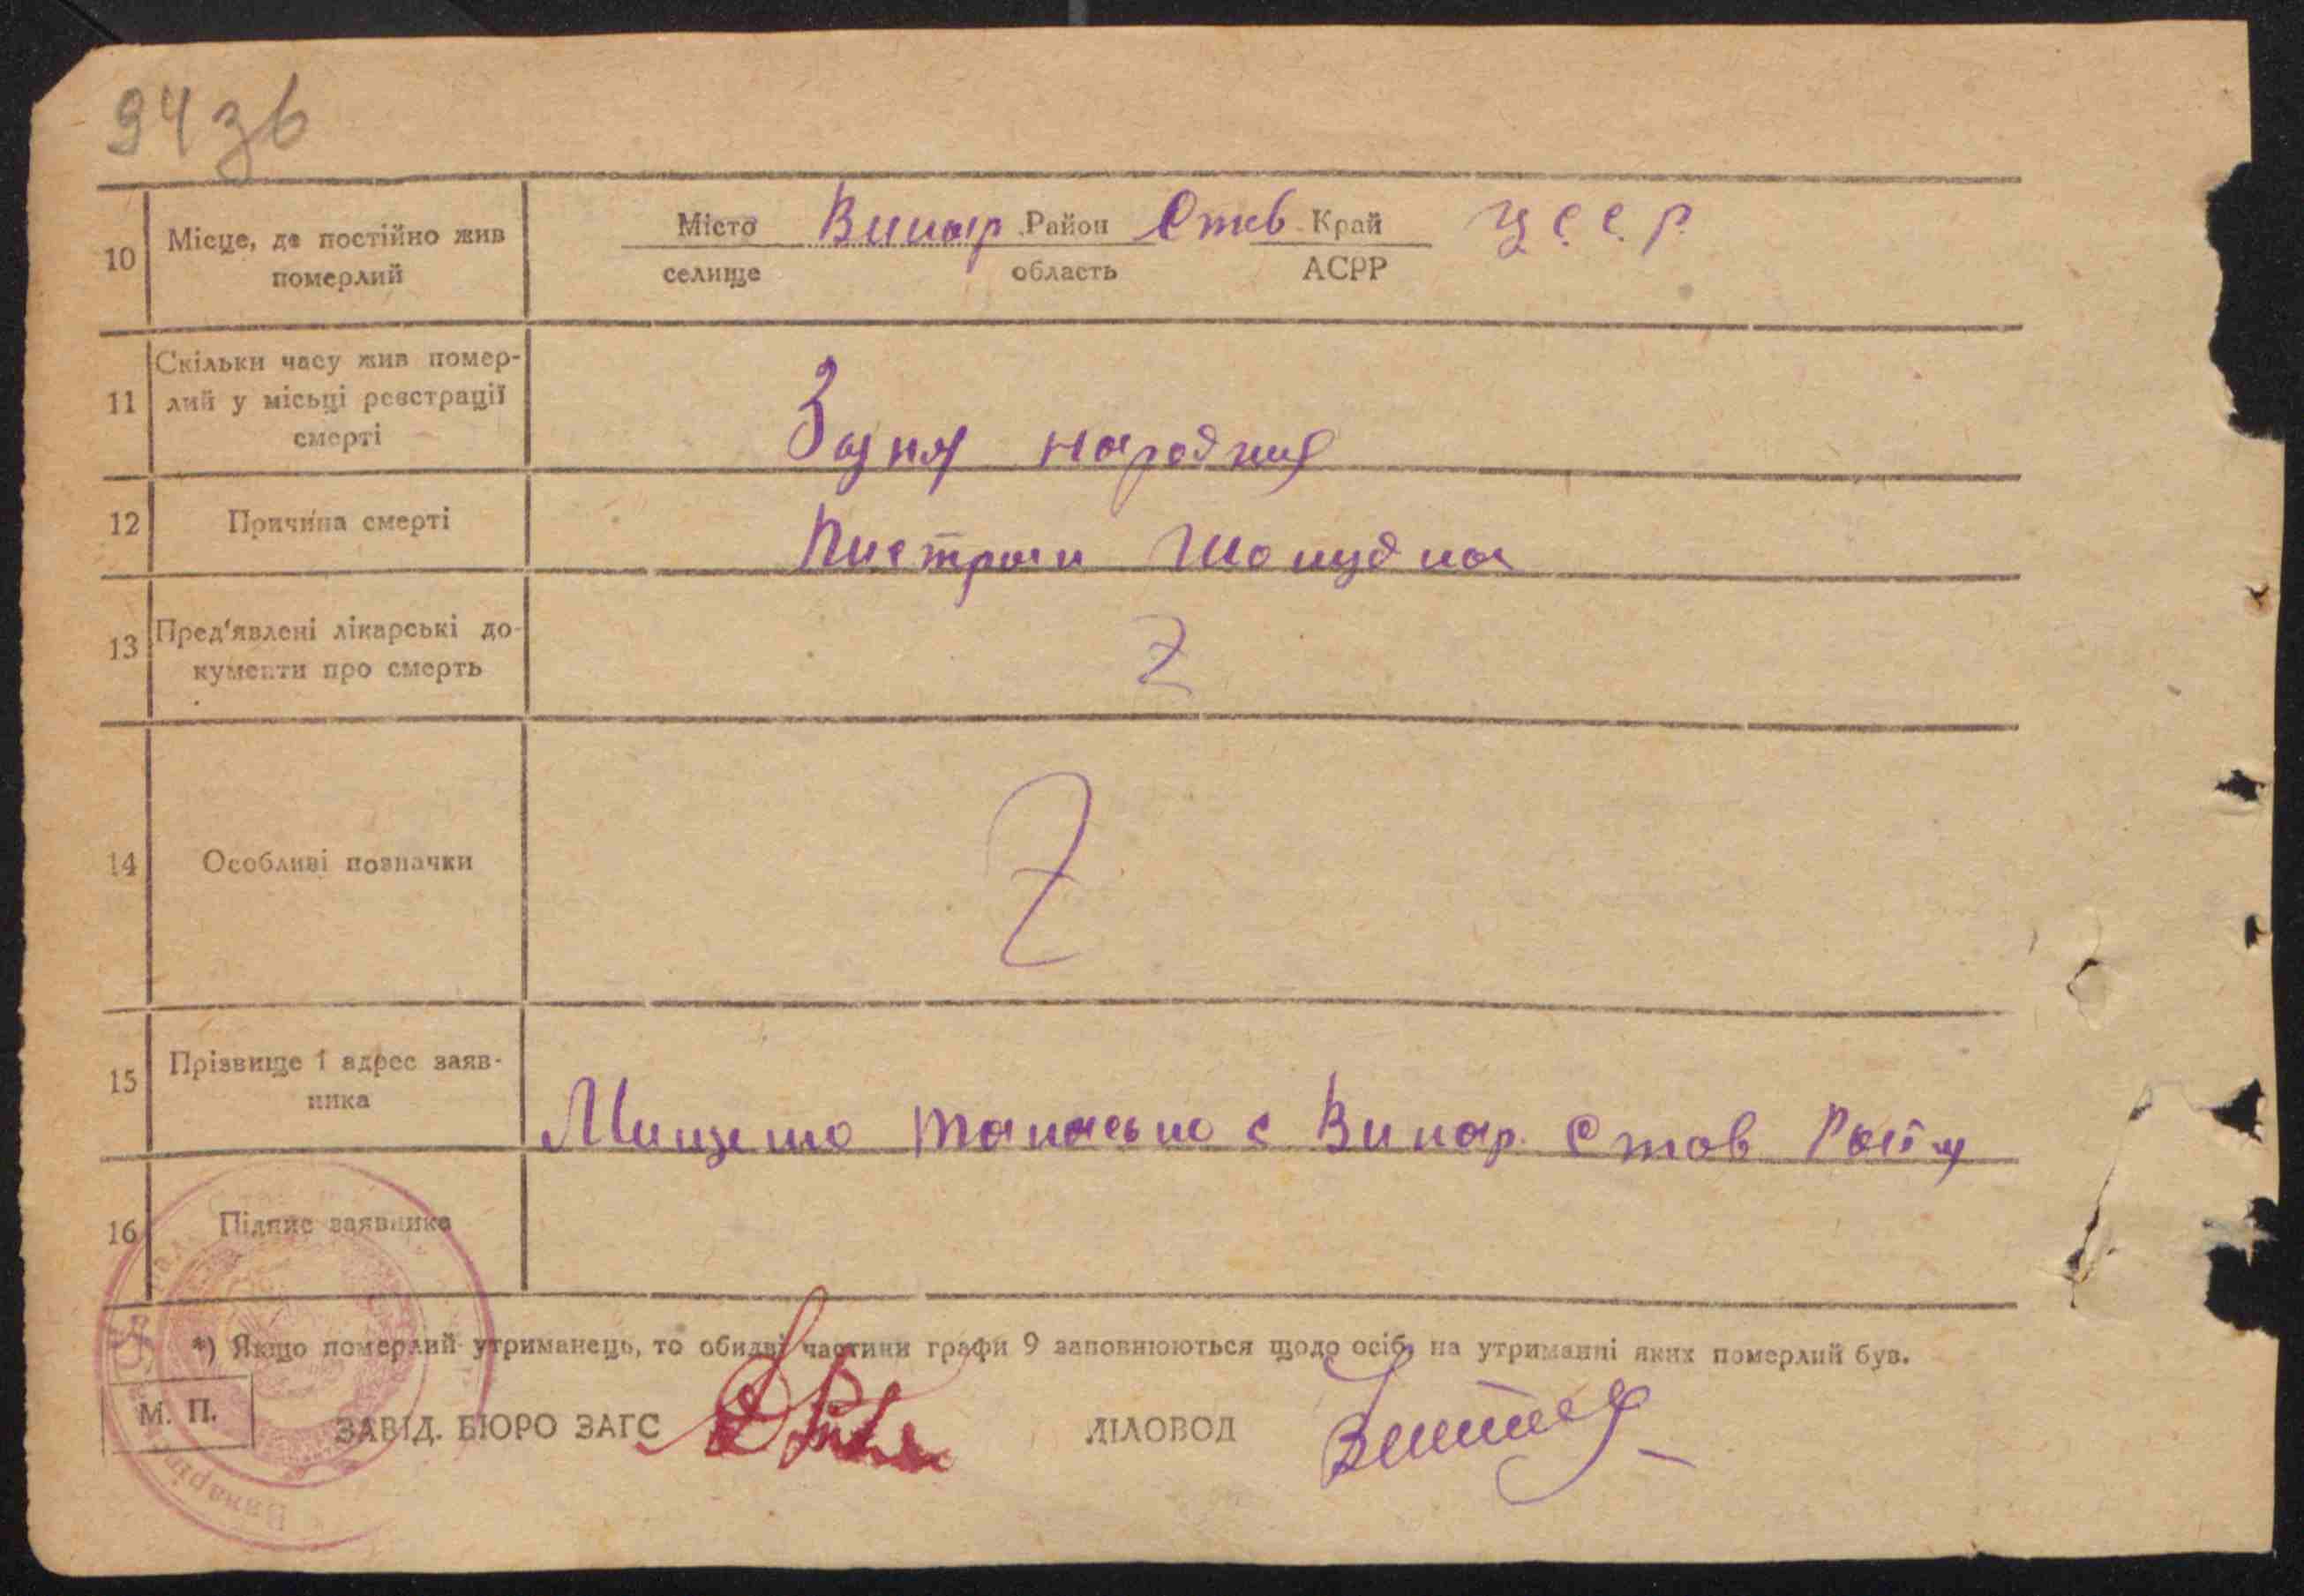 94зв
10 Місце, де постійно жив померлий
Місто Винар Район Ств Край УССР
селище область АСРР
11 Скільки часу жив помер-
лий у місьці реєстрації
смерті
З дня народния
12 Причина смерті
Катрал Шолудка
13 Пред'явлені лікарські до-
кументи про смерть
Z
14 Особливі позначки
Z
15 Прізвище і адрес заяв-
ника
Мищенко с Винар Став Рай
16 Підпис заявника
*) Якщо померлий утриманець, то обидві частини графи 9 заповнюються щодо осіб, на утриманні яких померлий був.
М. П.
ЗАВІД. БЮРО ЗАГС
ДІЛОВОД